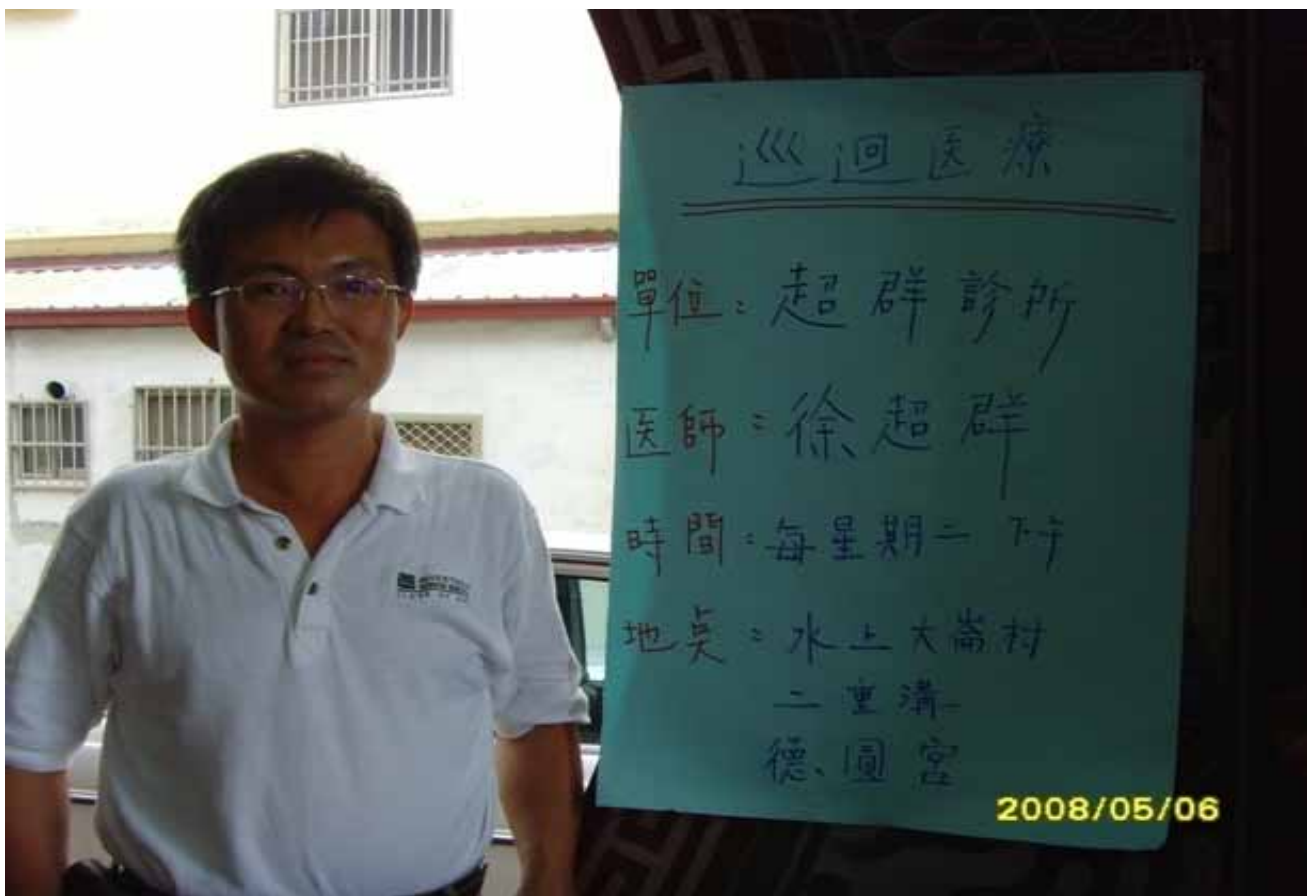 巡迴医療
單位：超群診所
医師：徐超群
時間：每星期二 下午
地點：水上大崙村
二重溝
德圓宮
2008/05/06